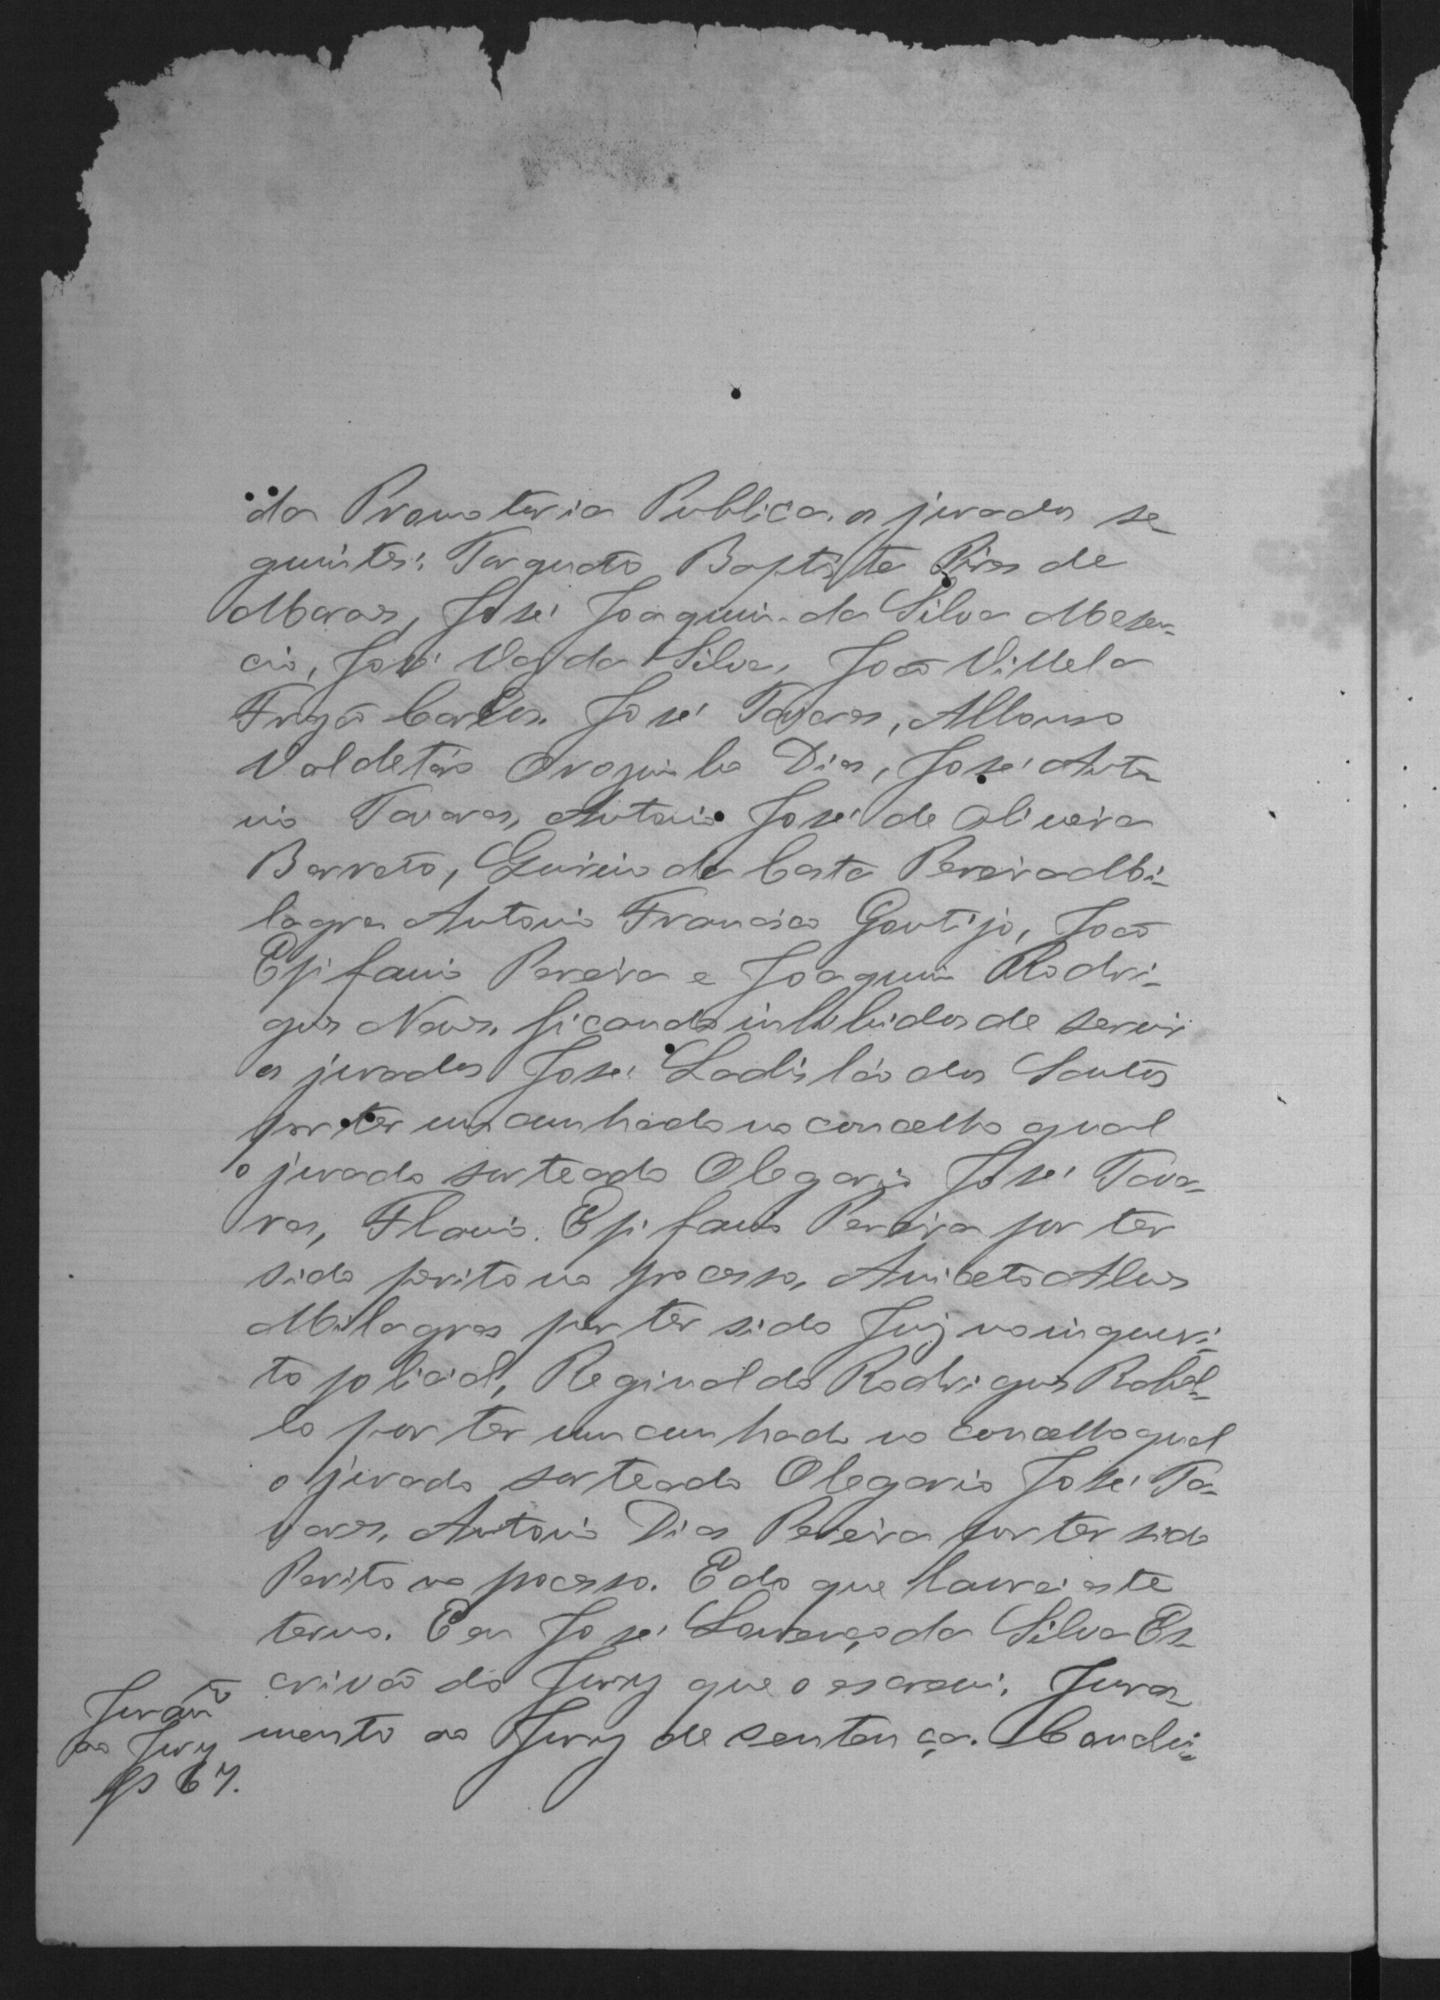 da Promotoria Publica. os jurados se-
guintes: Torquato Baptista Pires de
Moraes, José Joaquim da Silva Mesen-
cio, José Vaz da Silva, João Villela
Frazão Carlos José Tavares, Affonso
Valdetáro Dias, José Anto-
nio Tavares, Antonio José de Oliveira
Barreto, da Costa Pereira Mi-
lagres Antonio Francisco Gontijo, João
Epifanio Pereira e Joaquim Rodri-
gues Neves. ficando inhibidos de servir
os jurados José Ladisláo dos Santos
por ter um cunhado no concelho qual
o jurado sorteado Olegario José Tava-
res, Flavio Epifanio Pereira por ter
sido perito no processo, Aniceto Alves
Milagres por ter sido Juiz no inqueri-
to policial, Reginaldo Rodrigues Rabel-
lo por ter um cunhado no concelho qual
o jurado sorteado Olegario José Ta-
vares, Antonio Dias Pereira por ter sido
Perito no pocesso. E do que lavrei este
termo. Eu José Lourenço da Silva Es-
crivão do Jury que o escrevi. Jura-
mento ao Jury de sentença. Candi-
Juramto
ao Jury
fs 67.